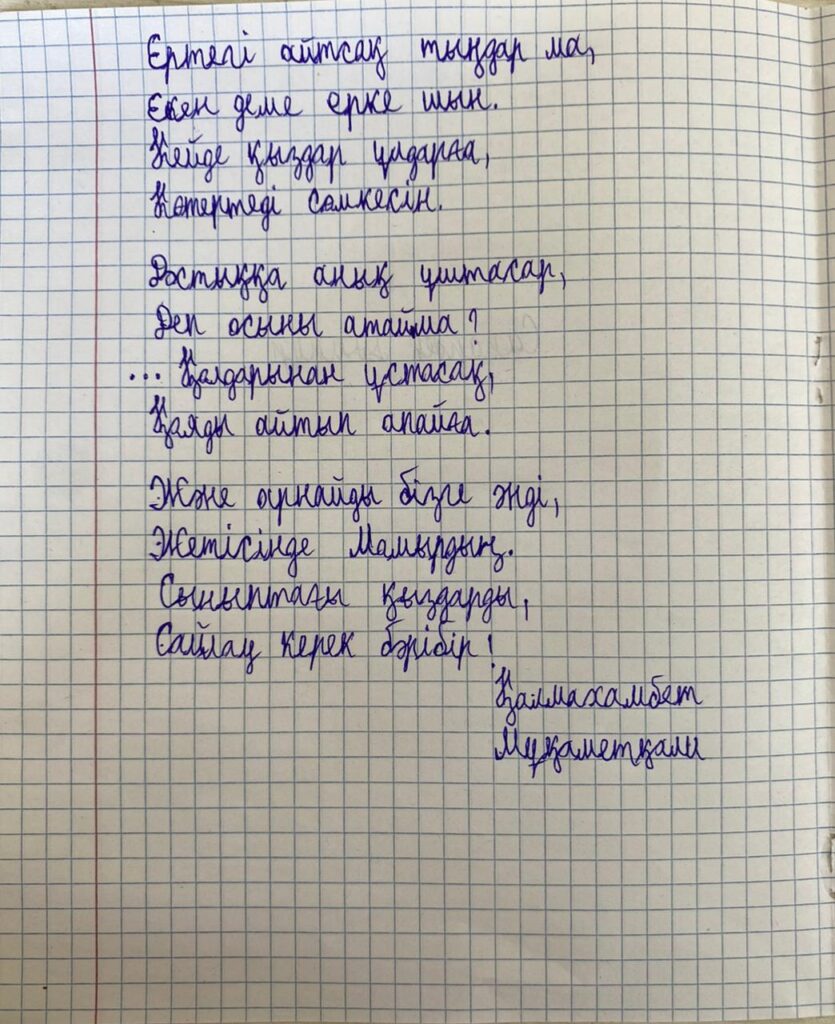 Ертегі айтсақ тыңдар ма,
Екен деме ерке шын.
Кейде қыздар ұлдарға,
Көтертеді сөмкесін.
Достыққа анық ұштасар,
Деп осыны атайма?
... Қолдарынан ұстасақ,
Қояды айтып апайға.
Және арнайды бізге әнді,
Жетісінде Мамырдың.
Сыныптағы қыздарды,
Сайлау керек бәрібір!
Қалмахамбет
Мұқаметқали